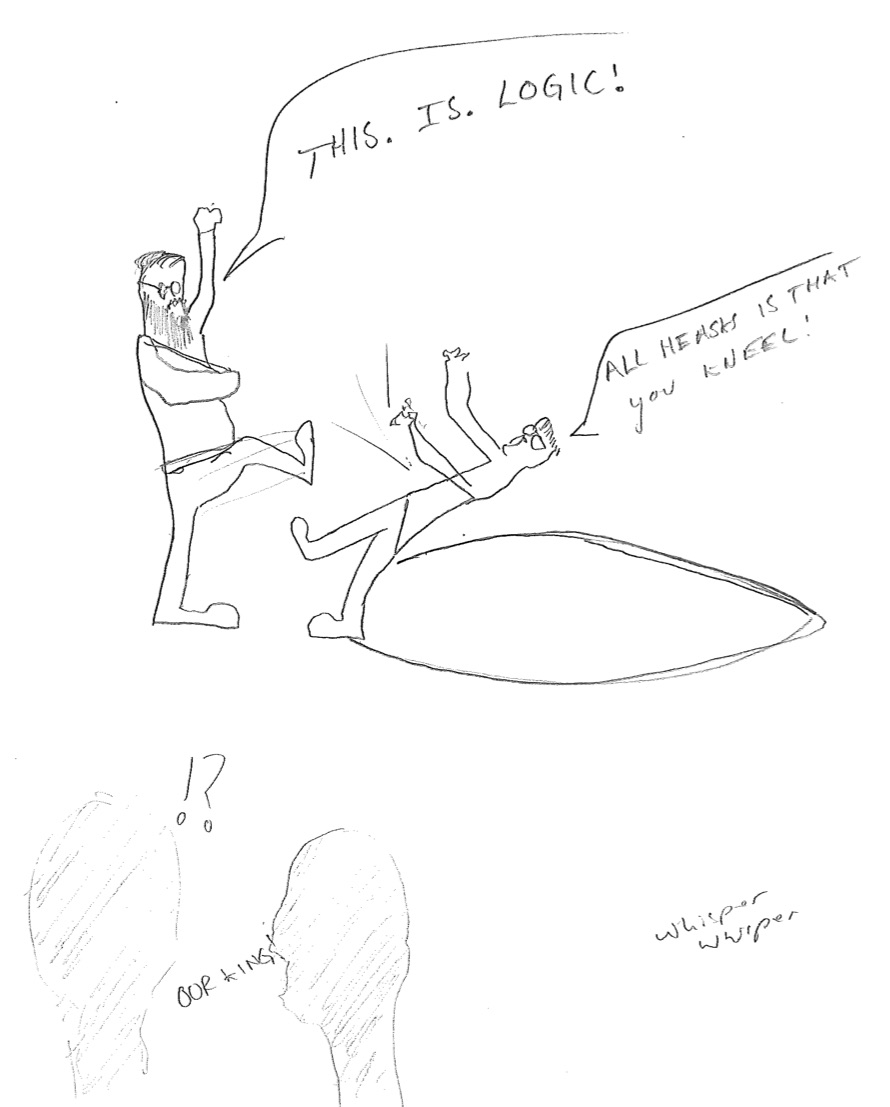 THIS. IS. LOGIC!
ALL HE ASKS IS THAT
YOU KNEEL!
!?
OUR KING!
whisper
whiper